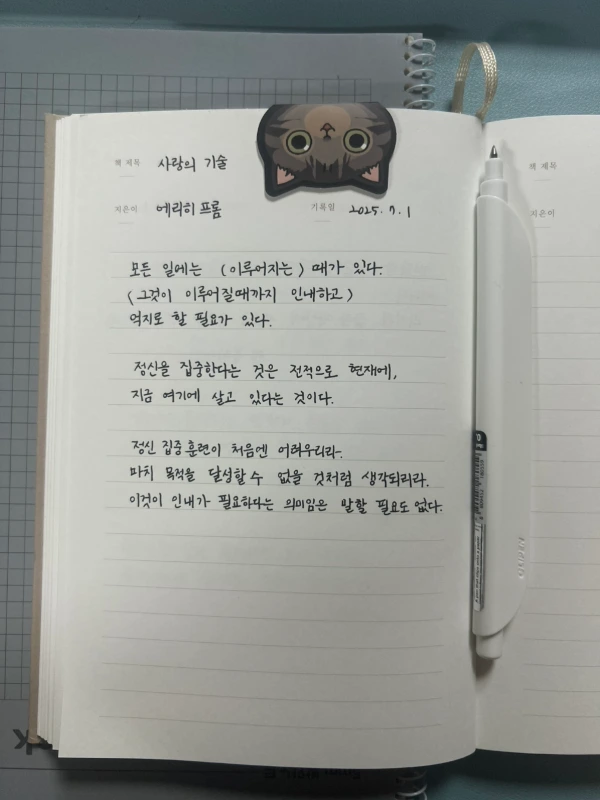 책 제목 사랑의 기술
지은이 에리히 프롬 기록일 2025. 7. 1
모든 일에는 (이루어지는) 때가 있다.
(그것이 이루어질때까지 인내하고)
억지로 할 필요가 있다.
정신을 집중한다는 것은 전적으로 현재에,
지금 여기에 살고 있다는 것이다.
정신 집중 훈련이 처음엔 어려우리라.
마치 목적을 달성할 수 없을 것처럼 생각되리라.
이것이 인내가 필요하다는 의미임은 말할 필요도 없다.
책 제목
지은이